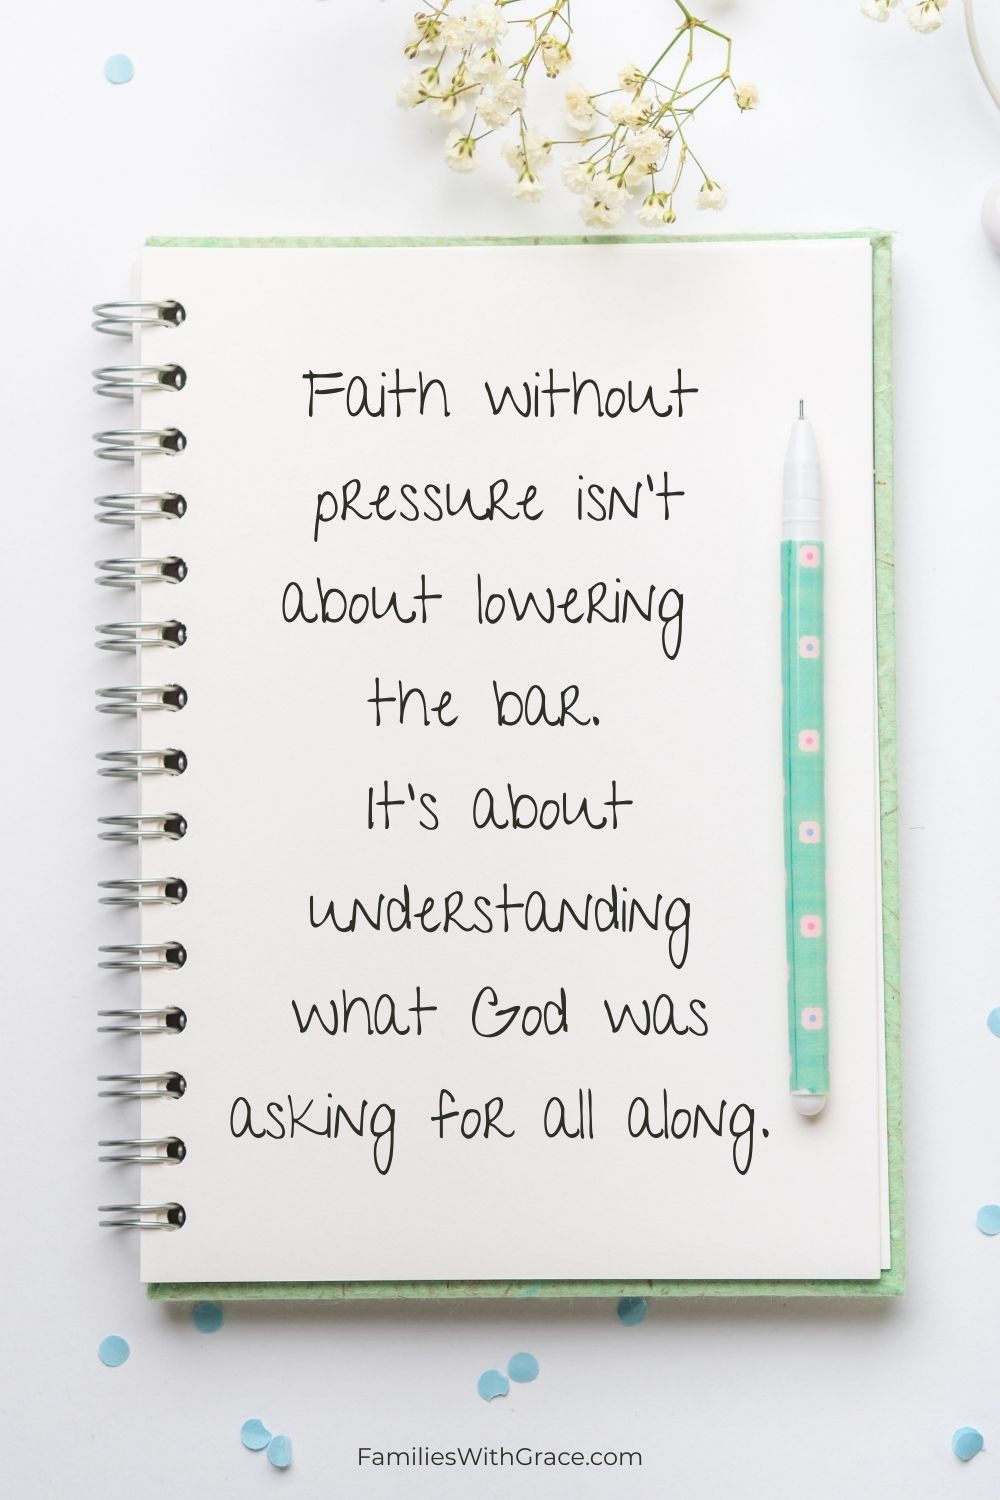 Faith without
pressure isn't
about lowering
the bar.
It's about
understanding
what God was
asking for all along.
FamiliesWithGrace.com